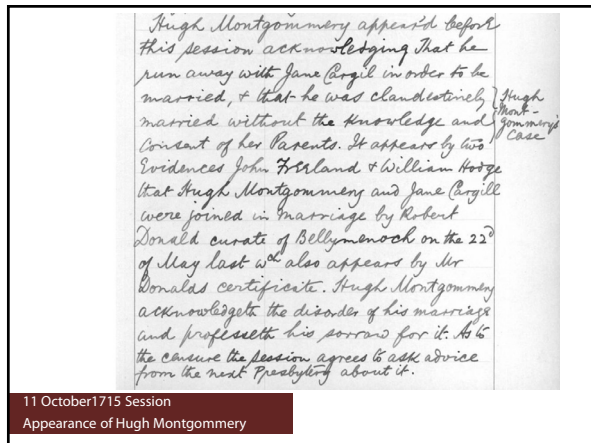 Hugh Montgommery appear'd before
this session acknowledging That he
run away with Jane Cargil in order to be
married, & that he was clandestinely
married without the knowledge and
consent of her Parents. It appears by two
Evidences John Freeland & William Hodge
that Hugh Montgommery and Jane Cargill
were joined in marriage by Robert
Donald curate of Bellymenoch on the 22d
of May last wch also appears by Mr
Donalds certificate. Hugh Montgommery
acknowledgeth the disorder of his marriage
and professeth his sorrow for it. As to
the censure the session agrees to ask advice
from the next Presbytery about it.
Hugh
Mont-
gommery's
Case
11 October1715 Session
Appearance of Hugh Montgommery